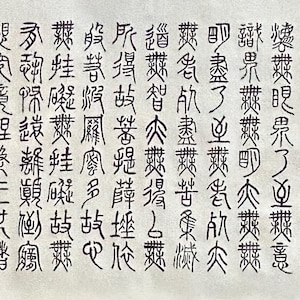 法無眼界乃至無意
識界無無明亦無無
明盡乃至無老死亦
無老死盡無苦集滅
道無智亦無得以無
所得故菩提薩埵依
般若波羅蜜多故心
無挂礙無挂礙故無
有恐怖遠離顛倒夢
想究竟涅槃三世諸